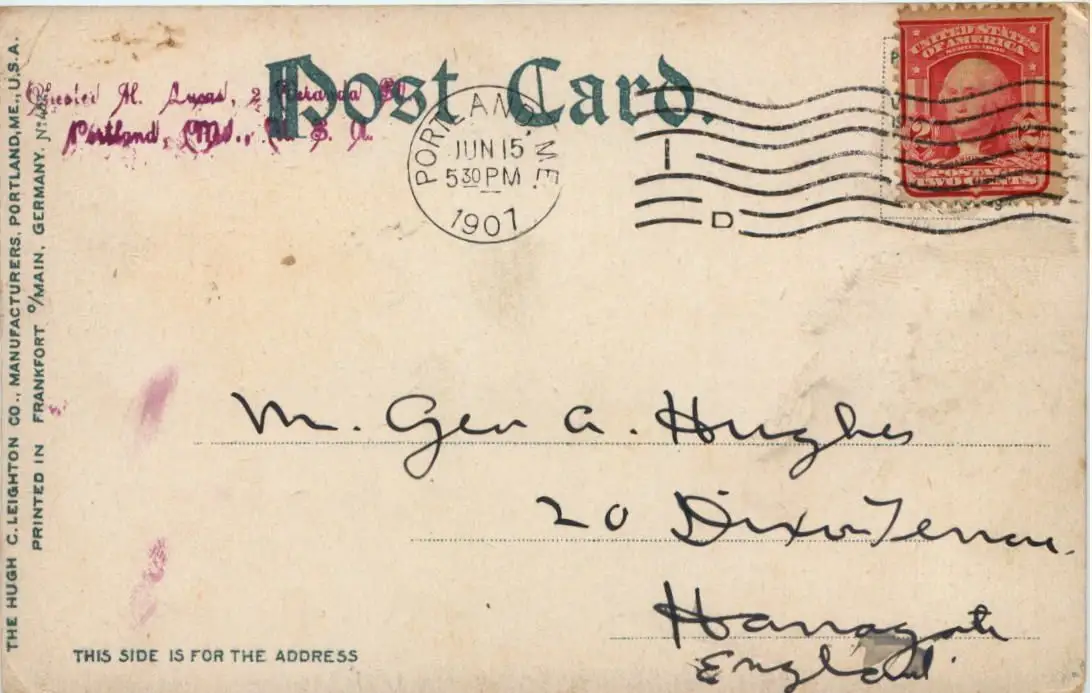 Post Card.
Chester H. Lucas, 2
Portland, Me., U. S. A.
PORTLAND, ME.
JUN 15
5 30 PM
1907
I
D
UNITED STATES
OF AMERICA
2 2
POSTAGE
M. Geo A. Hughes
20 Dixon Terrace
Harrogate
England.
THIS SIDE IS FOR THE ADDRESS
THE HUGH C. LEIGHTON CO., MANUFACTURERS, PORTLAND, ME., U.S.A.
PRINTED IN FRANKFORT o/MAIN, GERMANY.